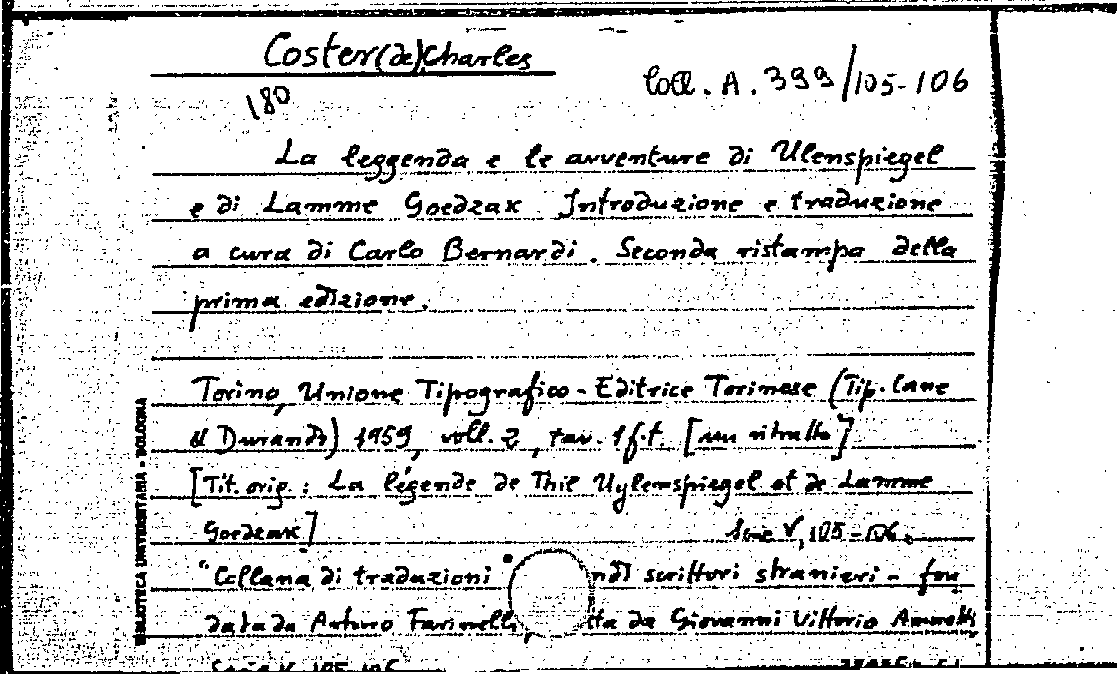 Coster (de) Charles
Coll. A. 399/105-106
180
La leggenda e le avventure di Ulenspiegel
e di Lamme Goedzak Introduzione e traduzione
a cura di Carlo Bernardi. Seconda ristampa della
prima edizione.
Torino, Unione Tipografico-Editrice Torinese (Tip. Cane
& Durando) 1959, voll. 2, tav. 1 f.t. [un ritratto]
[Tit. orig.: La légende de Thil Uylenspiegel et de Lamme
Goedzak]
V, 105-106.
"Collana di traduzioni ndi scrittori stranieri - fon
data da Arturo Farinelli, tta da Giovanni Vittorio Amoretti
Serie V, 105-106
BIBLIOTECA UNIVERSITARIA - BOLOGNA